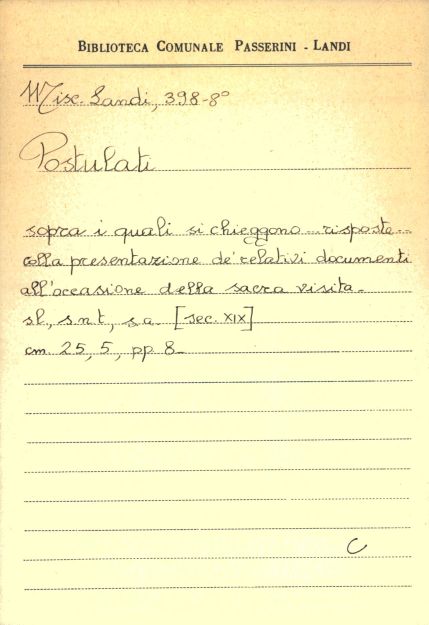 BIBLIOTECA COMUNALE PASSERINI - LANDI
Misc. Landi, 398-8°
Postulati
sopra i quali si chieggono risposte
colla presentazione de' relativi documenti
all'occasione della sacra visita.
s.l., s.n.t., s.a. [sec. XIX]
cm 25,5, pp 8.
C